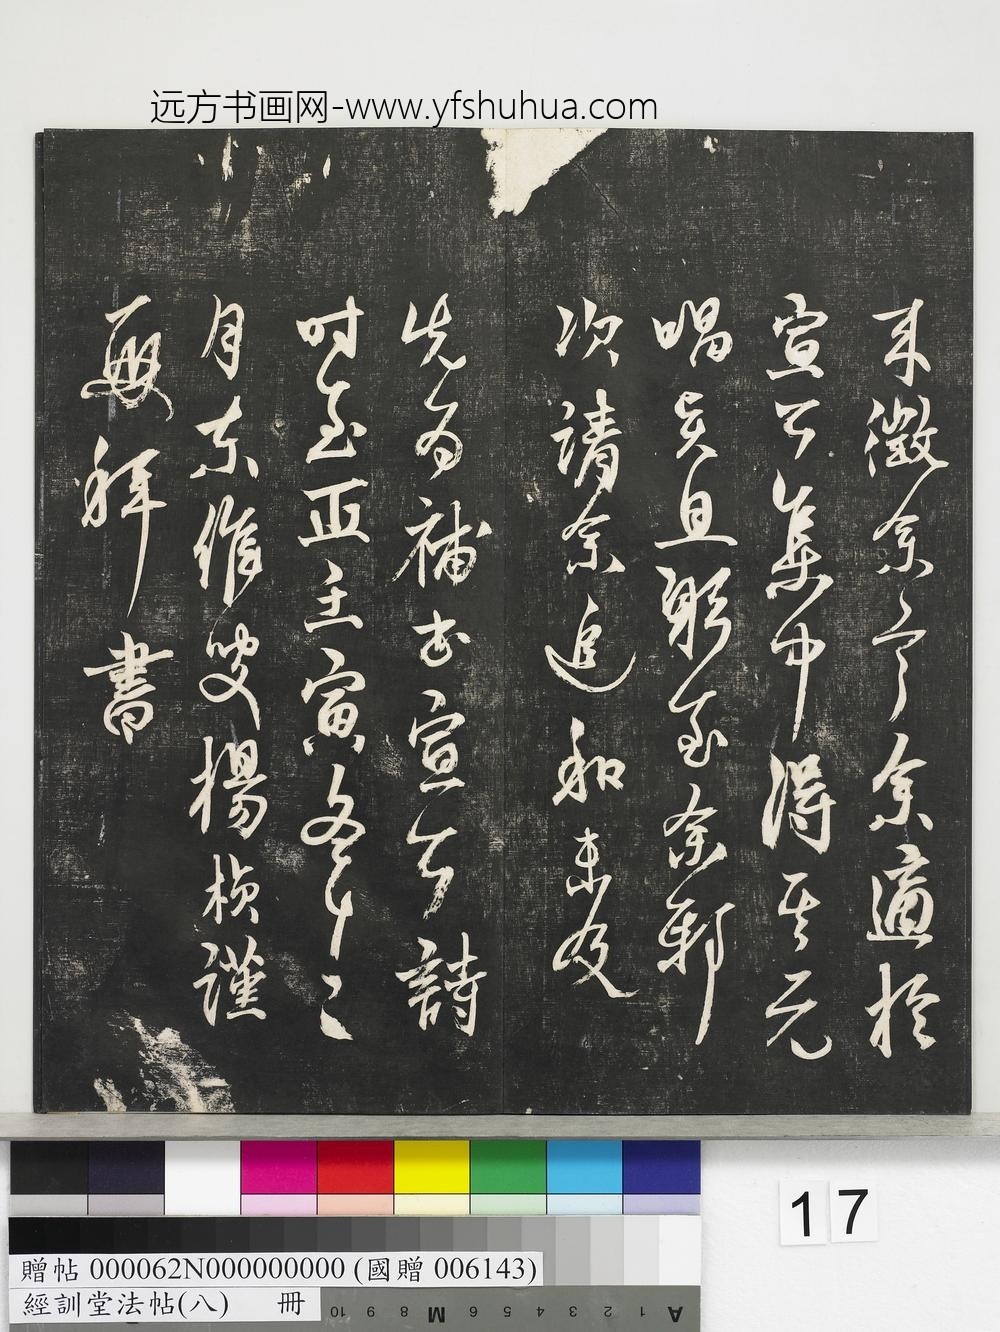 远方书画网-www.yfshuhua.com
来徵余言余適於
宣公集中得其元
唱矣且躬至余邸
次請余追和未及
先為補書宣公詩
时至正壬寅冬十二
月東維叟楊楨謹
拜書
17
贈帖 000062N000000000 (國贈 006143)
經訓堂法帖(八) 冊
10 9 8 M 6 5 4 3 2 1 A